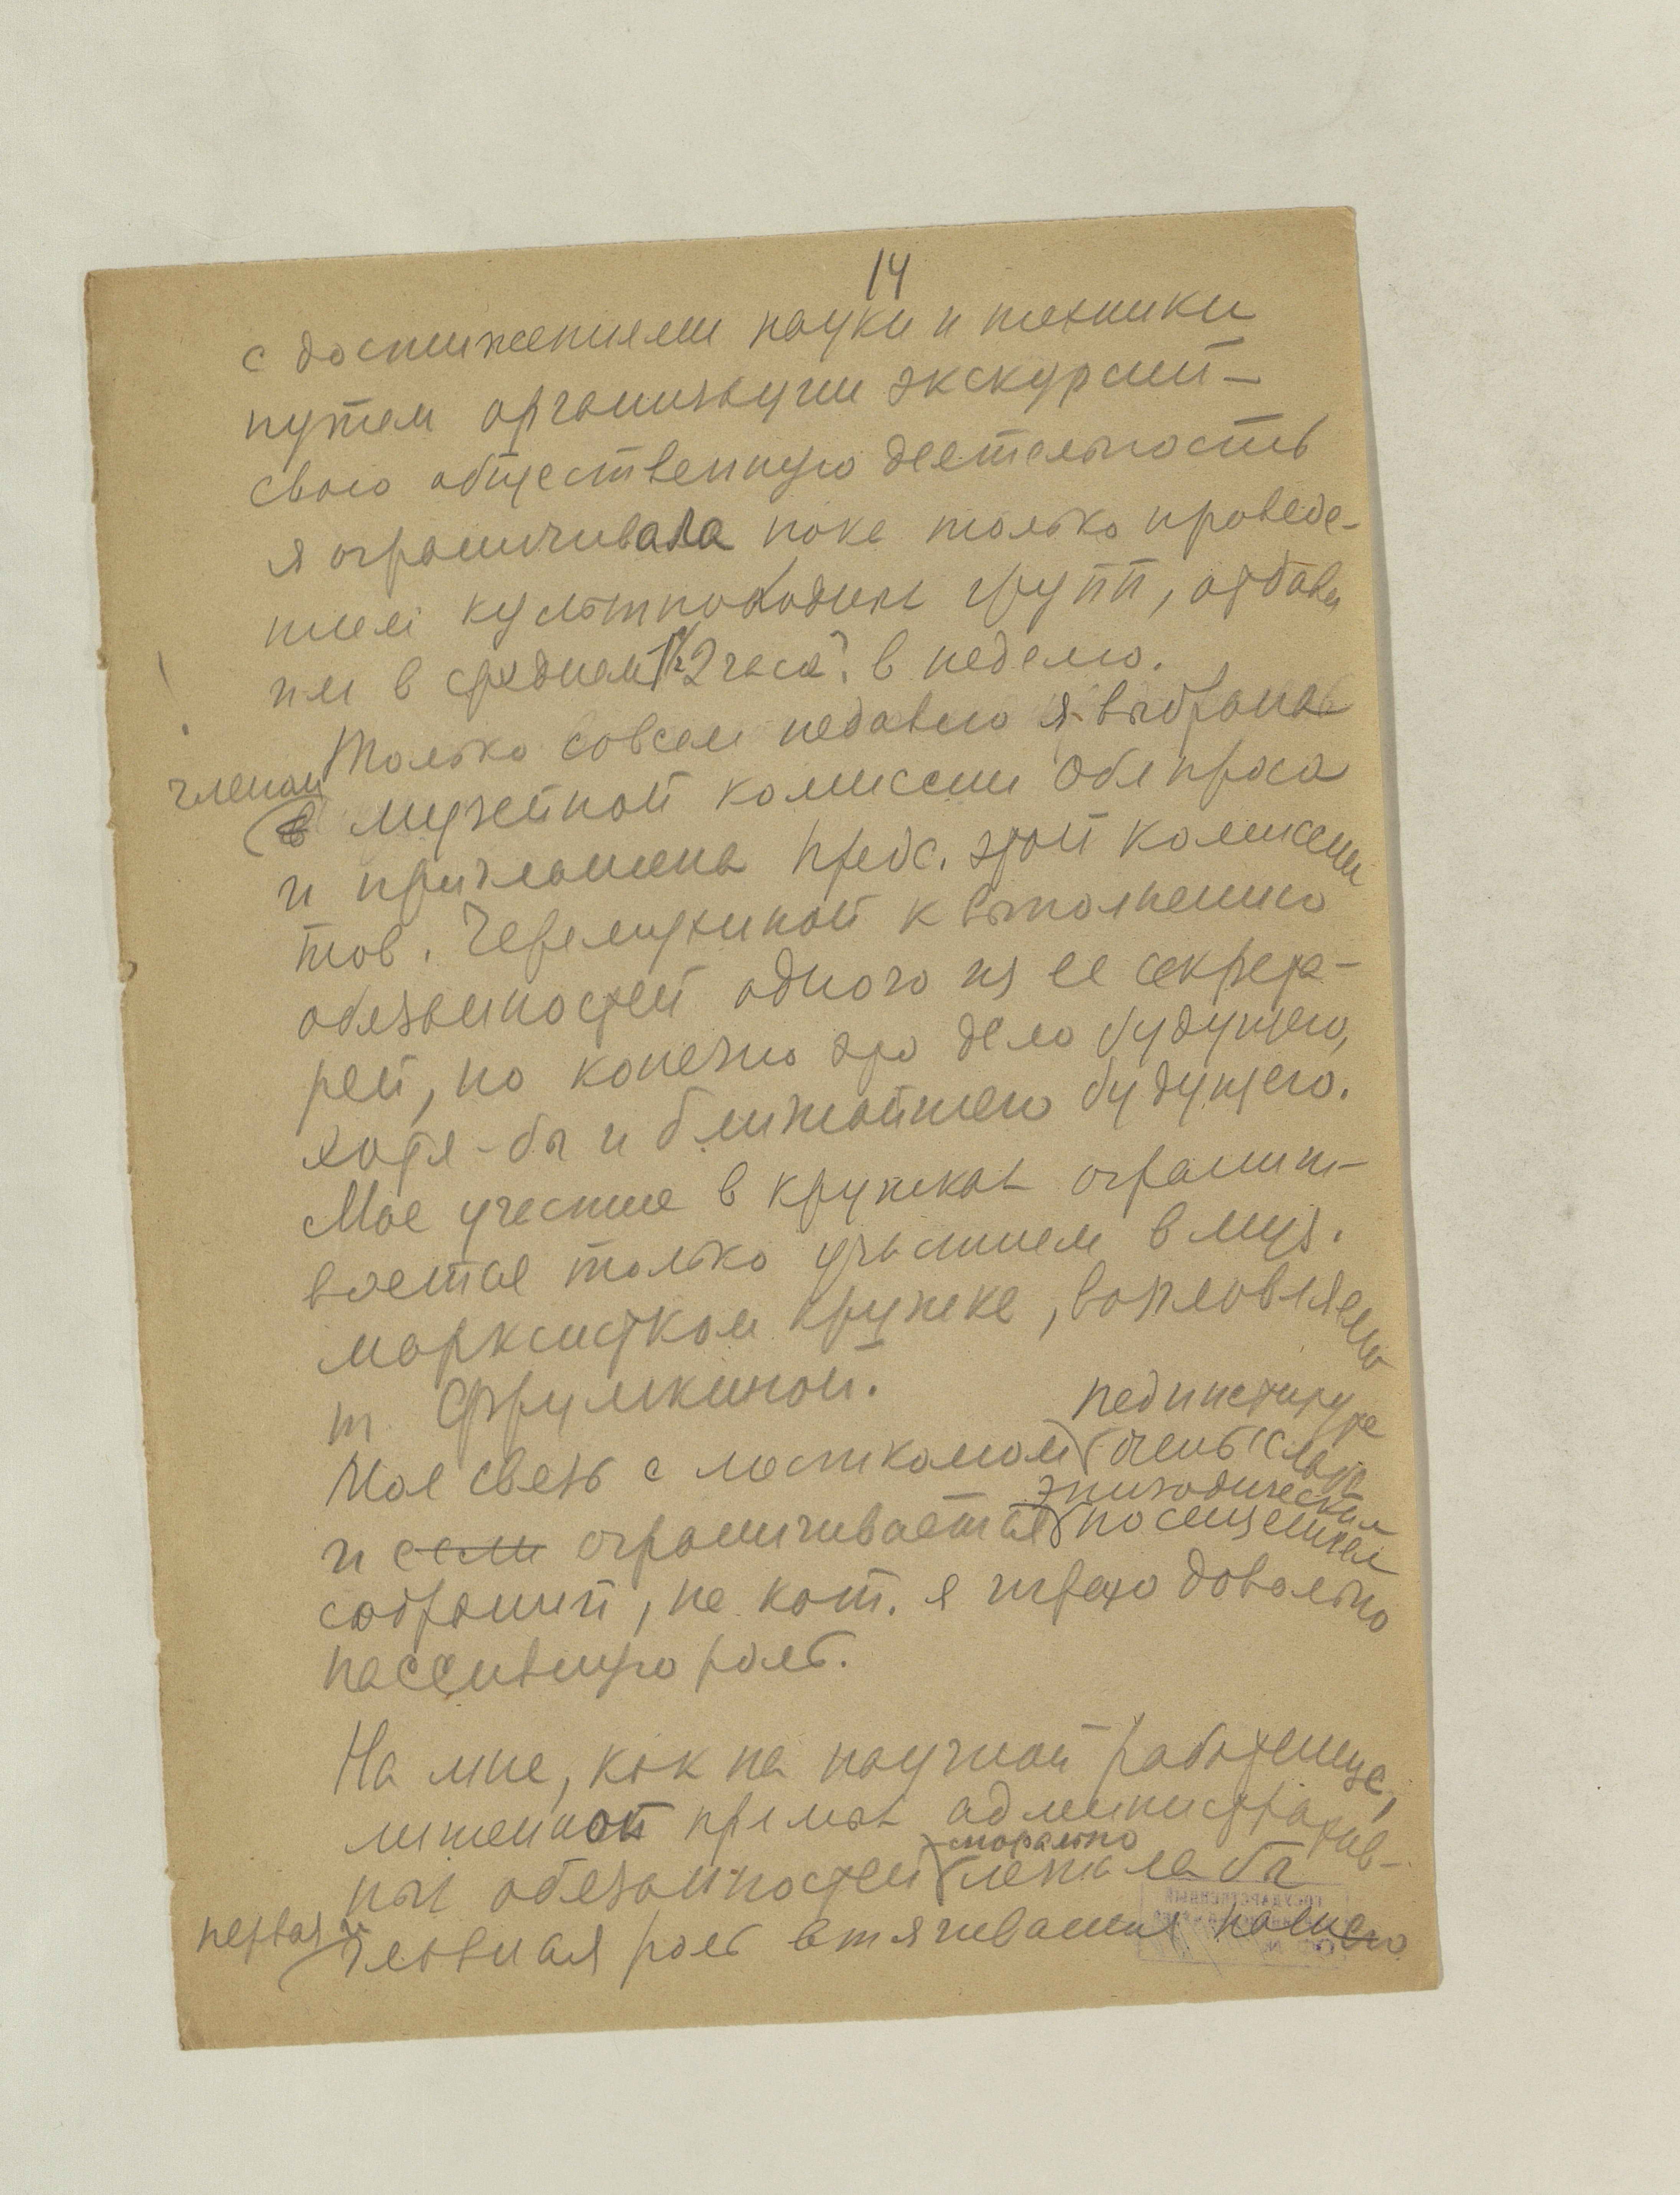 14
с достижениями науки и техники
путем организации экскурсий –
свою общественную деятельность
я ограничивала пока только проведе-
нием культпоходных групп, отдавая
им в среднем 1½ 2 часа в неделю.
Только совсем недавно я выбрана
членом музейной комиссии Облпроса
и приглашена пред. этой комиссии
тов. Черемухиной к выполнению
обязанностей одного из ее секрета-
рей, но конечно это дело будущего,
хотя-бы и ближайшего будущего.
Мое участие в кружках ограничи-
вается только участием в муз.
марксистком кружке, возглавляемо
т. Фрумкиной.
Моя связь с месткомом пединститута очень слаба
и если ограничивается эпизодическим посещением
собраний, на кот. я играю довольно
пассивную роль.
На мне, как на научной работнице,
лишенной прямых административ-
ных обязанностей морально лежала бы
первая и главная роль втягивания